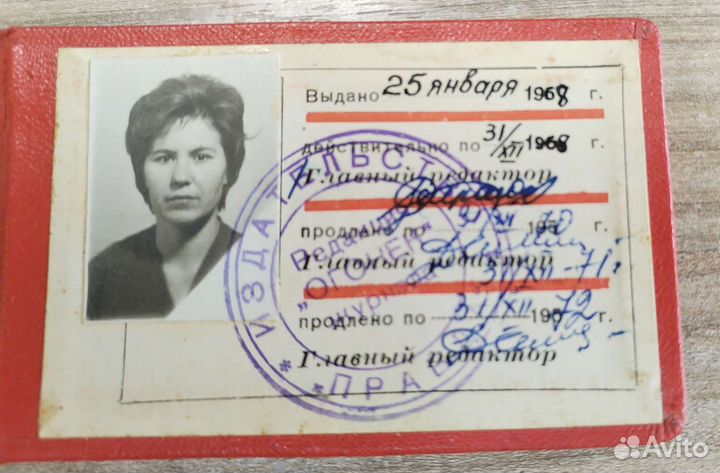 Выдано 25 января 1968 г.
действительно по 31/XII 1968 г.
Главный редактор
продлено по 31/XII 1970 г.
Главный редактор
31/XII-71г.
продлено по 31/XII 1972 г.
Главный редактор
ИЗДАТЕЛЬСТ
ПРАВ
Редакция
журнала
"ОГОНЕК"
Avito